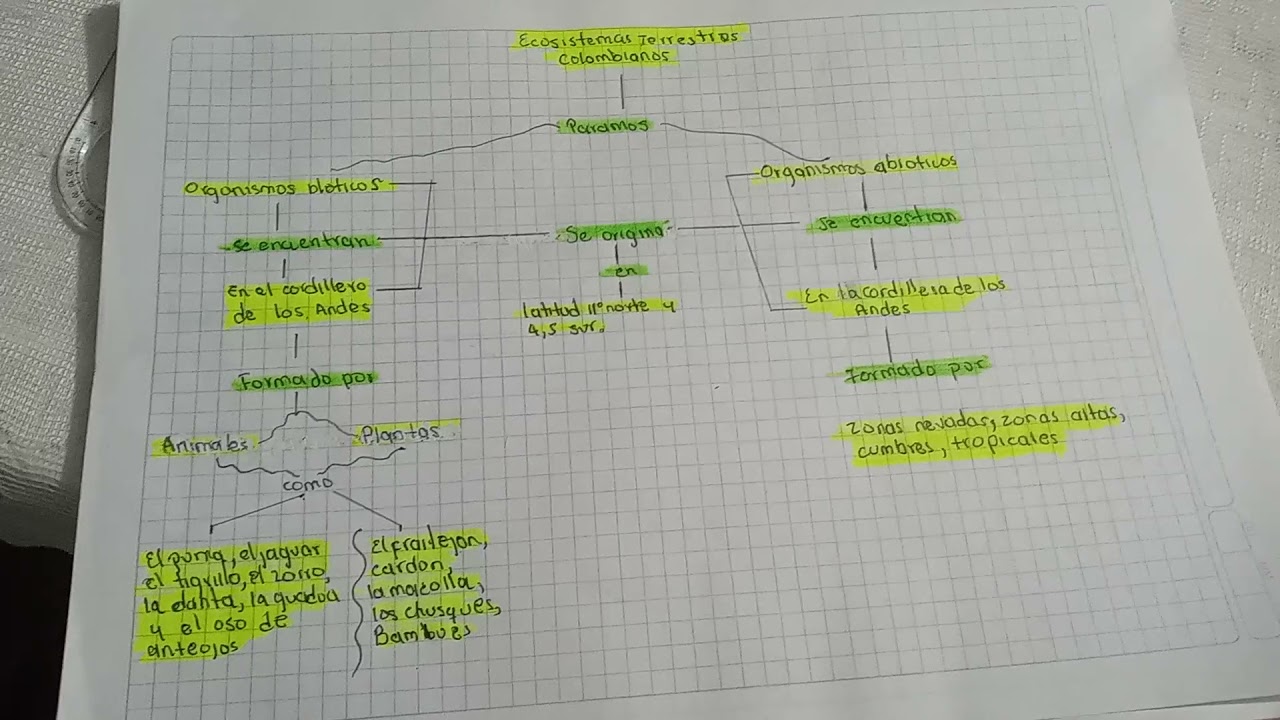 Ecosistemas Terrestres
Colombianos
Paramos
Organismos bioticos
Organismos abioticos
Se encuentran
Se origina
Se encuentran
en
En el cordillero
de los Andes
latitud 11° norte y
4,5 sur.
En la cordillera de los
Andes
Formado por
Formado por
Animales
Plantas
Zonas nevadas, zonas altas,
cumbres, tropicales
como
El puma, el jaguar
el tigrillo, el zorro,
la danta, la
y el oso de
anteojos
El frailejon,
cardon,
la macolla,
los chusques,
Bambues